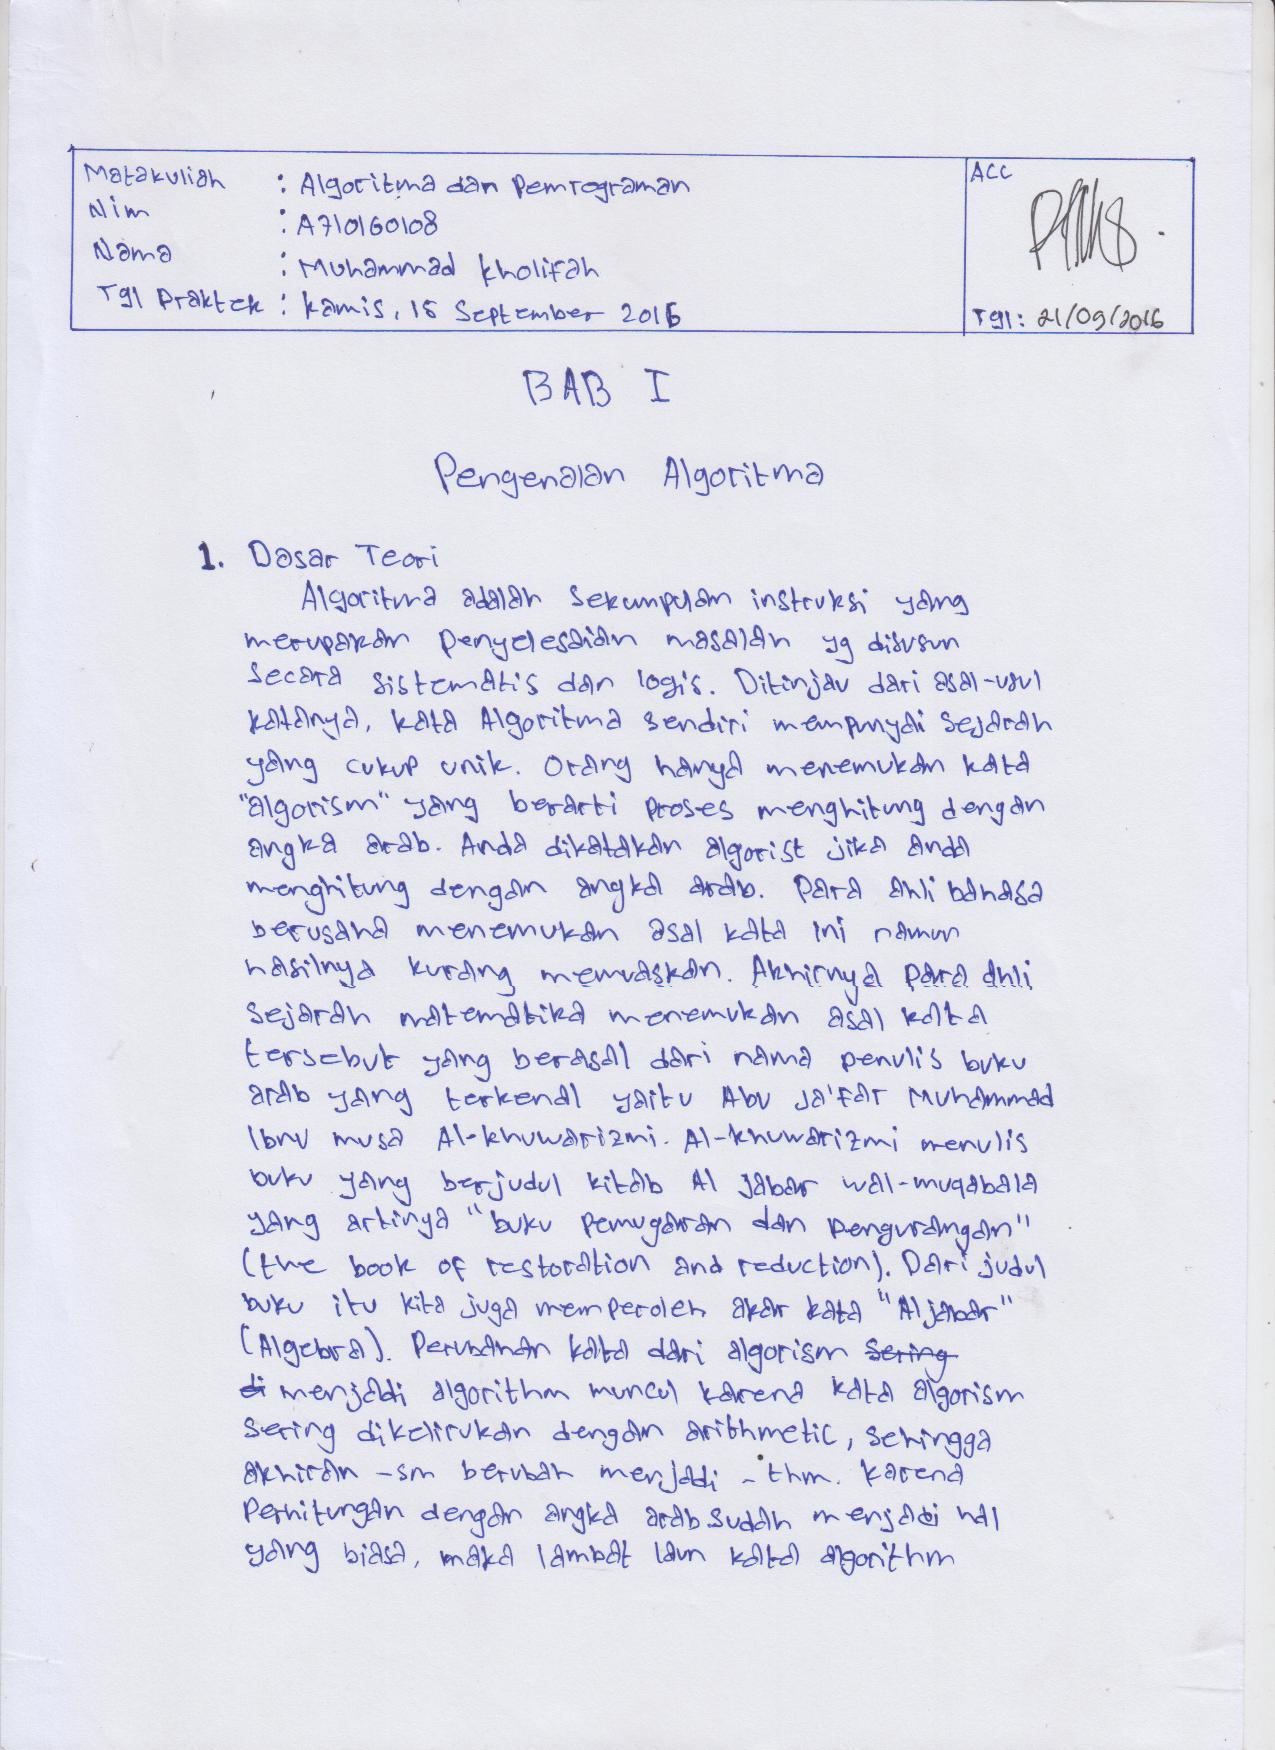 Matakuliah : Algoritma dan Pemrograman
Nim : A710160108
Nama : Muhammad Kholifah
Tgl Praktek : Kamis, 15 September 2016
ACC
Tgl : 21/09/2016
BAB I
Pengenalan Algoritma
1. Dasar Teori
Algoritma adalah sekumpulan instruksi yang
merupakan penyelesaian masalah yg disusun
secara sistematis dan logis. Ditinjau dari asal-usul
katanya, kata Algoritma sendiri mempunyai sejarah
yang cukup unik. Orang hanya menemukan kata
"algorism" yang berarti proses menghitung dengan
angka arab. Anda dikatakan algorist jika anda
menghitung dengan angka arab. Para ahli bahasa
berusaha menemukan asal kata ini namun
hasilnya kurang memuaskan. Akhirnya para ahli
sejarah matematika menemukan asal kata
tersebut yang berasal dari nama penulis buku
arab yang terkenal yaitu Abu Ja'far Muhammad
Ibnu musa Al-khuwarizmi. Al-khuwarizmi menulis
buku yang berjudul kitab Al jabar wal-muqabala
yang artinya "buku pemugaran dan pengurangan"
(the book of restoration and reduction). Dari judul
buku itu kita juga memperoleh akar kata "Aljabar"
(Algebra). Perubahan kata dari algorism sering
di menjadi algorithm muncul karena kata algorism
sering dikelirukan dengan arithmetic, sehingga
akhiran -sm berubah menjadi -thm. Karena
Perhitungan dengan angka arab sudah menjadi hal
yang biasa, maka lambat laun kata algorithm